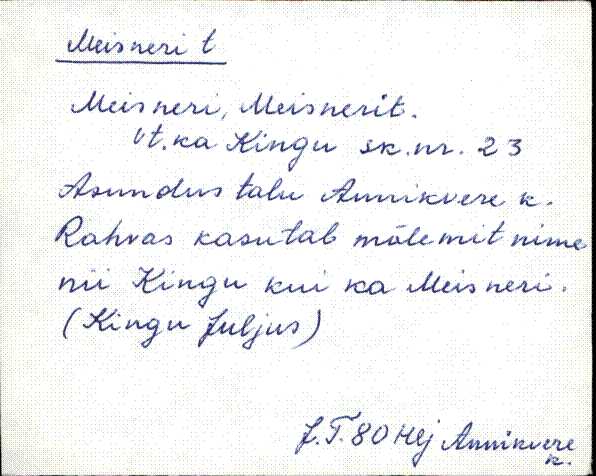 Meisneri t
Meisneri, Meisnerit.
Vt. ka Kingu sk. nr. 23
Asundus talu Annikvere k.
Rahvas kasutab mõlemit nime
nii Kingu kui ka Meisneri.
(Kingu Juljus)
J. T. 80 Hlj Annikvere
k.